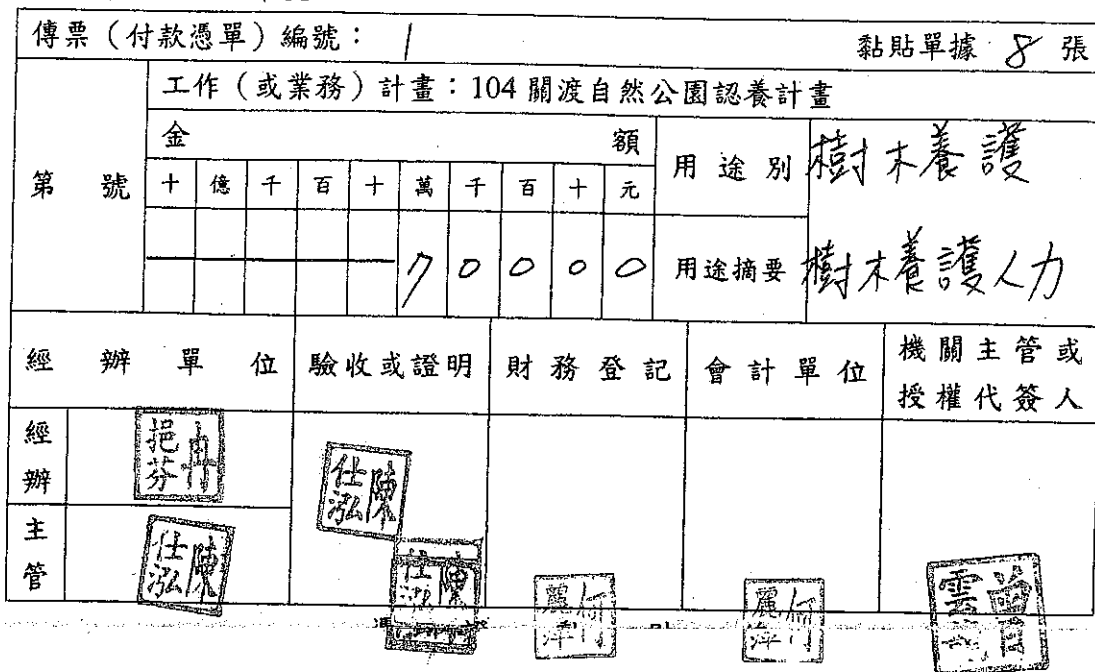 傳票（付款憑單）編號： 1 黏貼單據 8 張
工作（或業務）計畫：104關渡自然公園認養計畫
第 號 金 額 用途別 樹木養護
十 億 千 百 十 萬 千 百 十 元
7 0 0 0 0 用途摘要 樹木養護人力
經辦單位 驗收或證明 財務登記 會計單位 機關主管或授權代簽人
經辦 冉挹芬 陳仕泓
主管 陳仕泓 陳仕泓 何麗萍 何麗萍